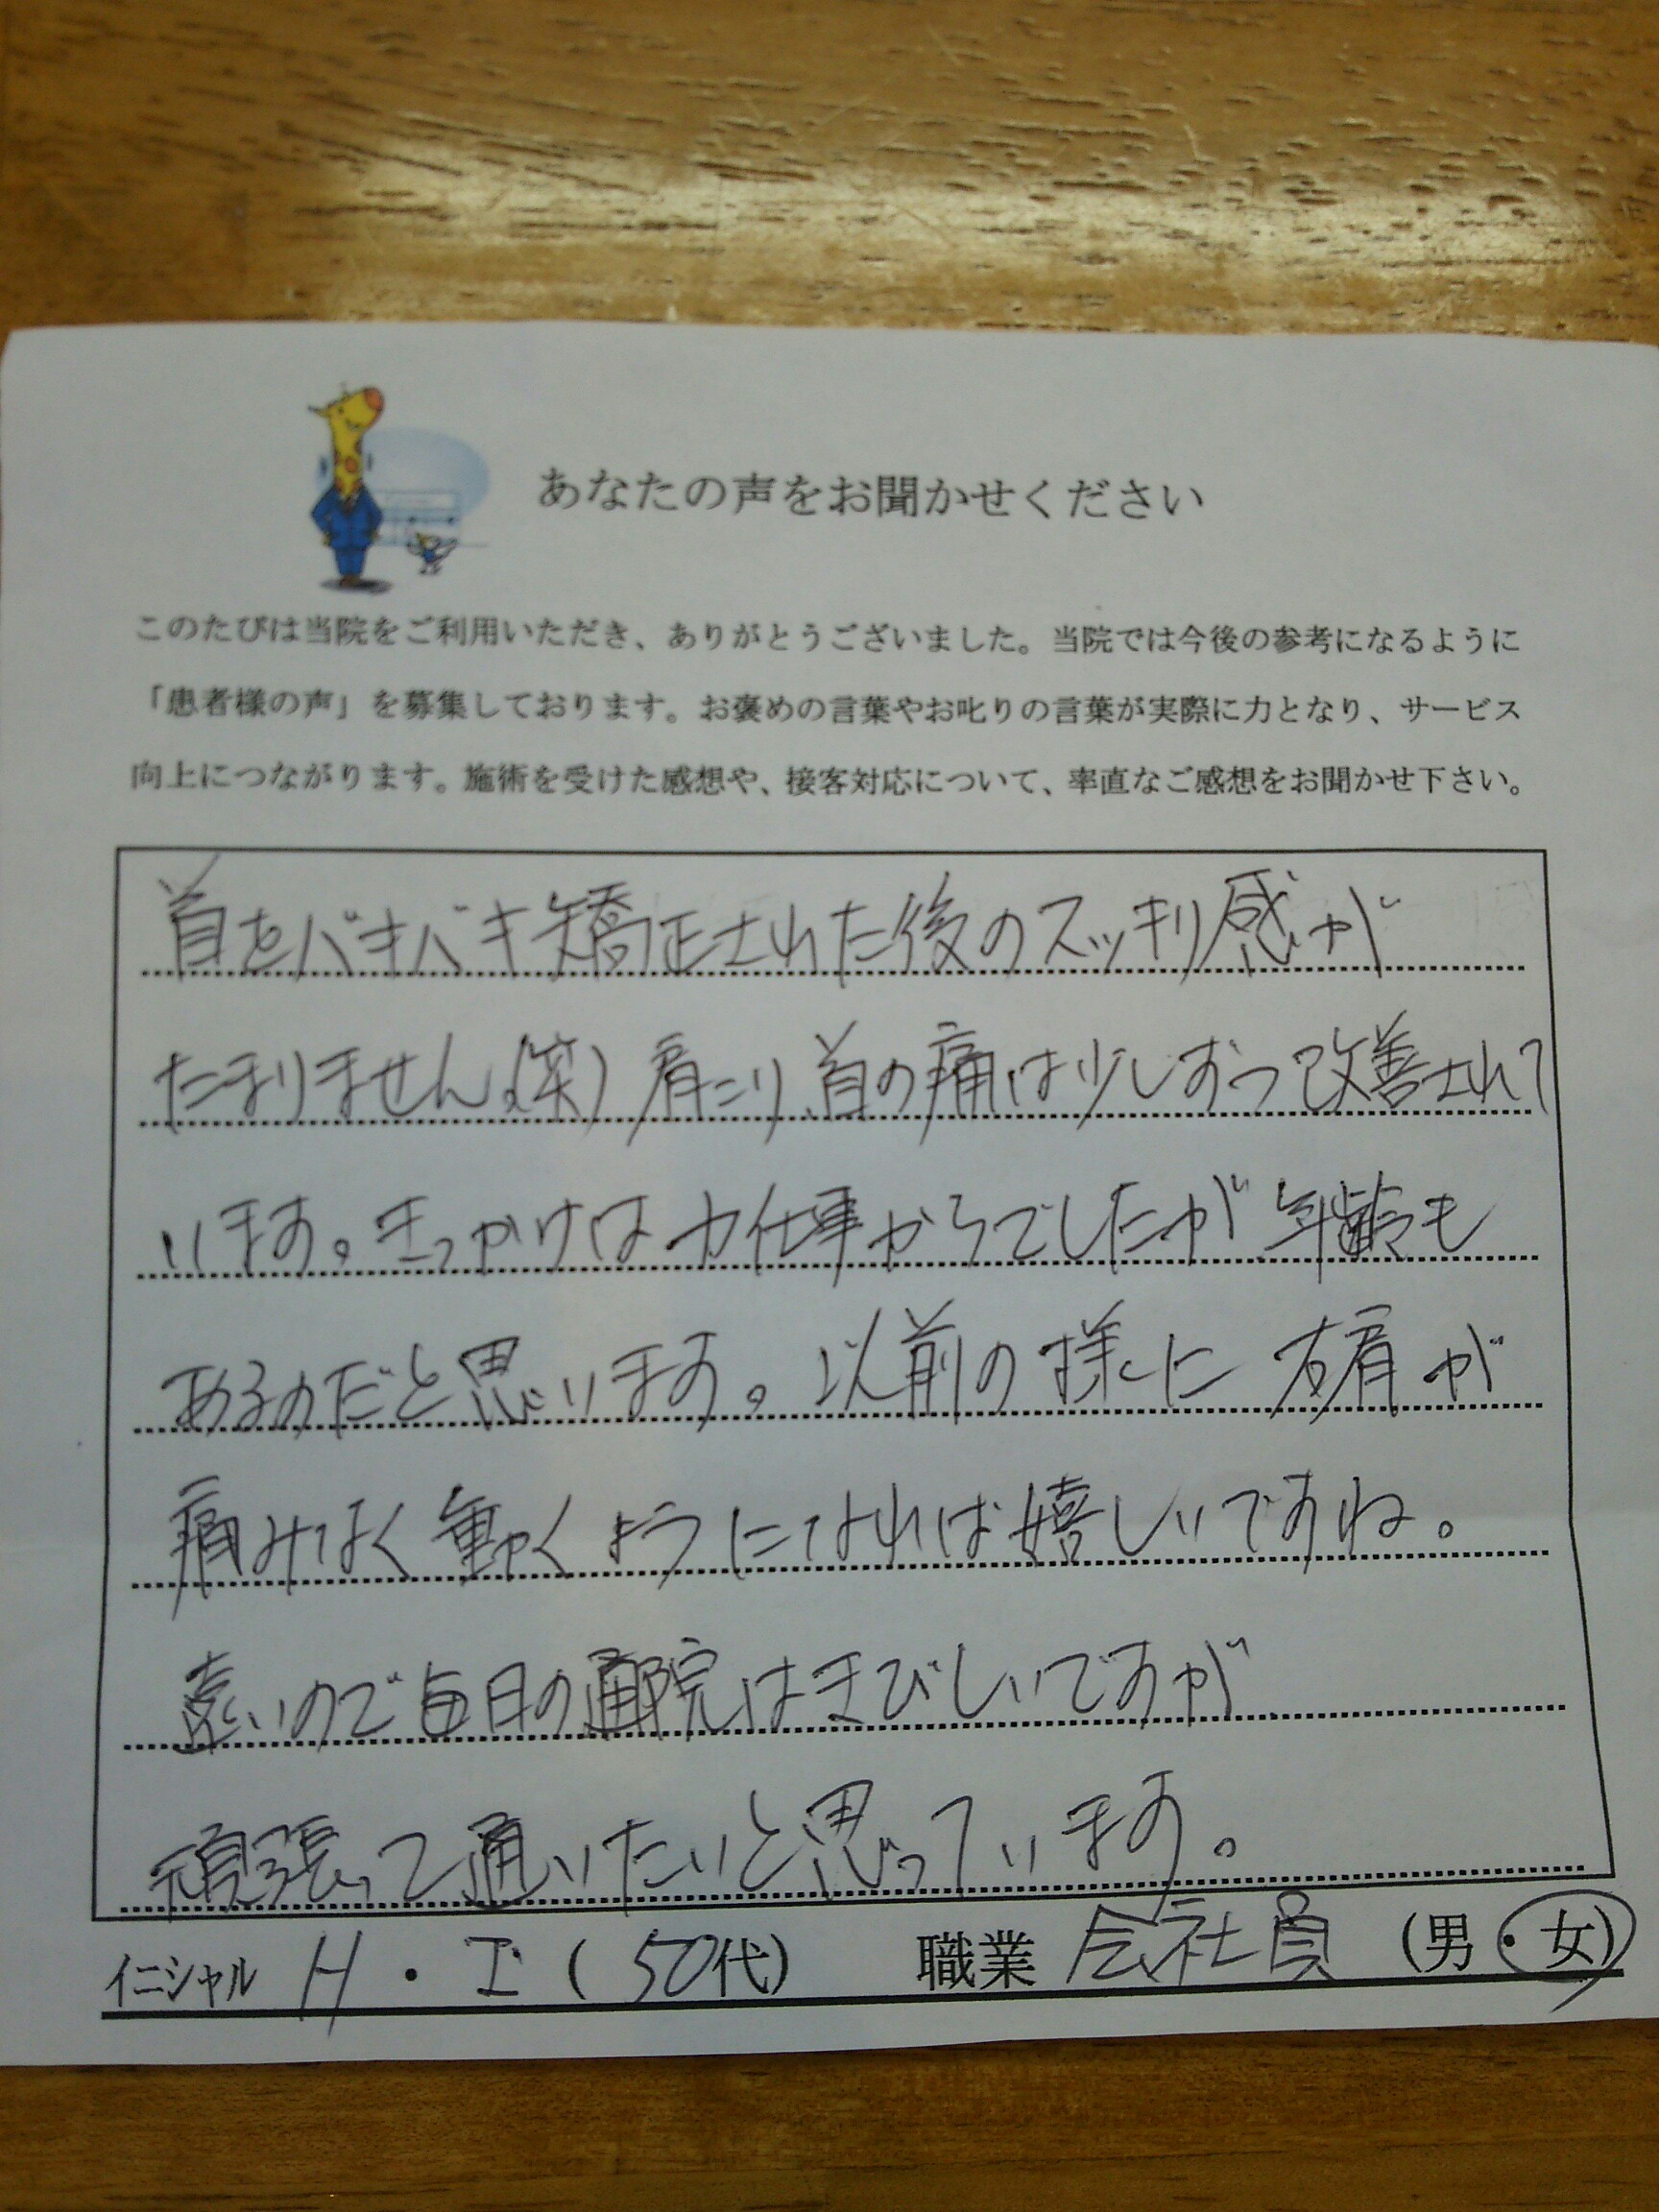 あなたの声をお聞かせください
このたびは当院をご利用いただき、ありがとうございました。当院では今後の参考になるように
「患者様の声」を募集しております。お褒めの言葉やお叱りの言葉が実際に力となり、サービス
向上につながります。施術を受けた感想や、接客対応について、率直なご感想をお聞かせ下さい。
首をバキバキ矯正された後のスッキリ感が
たまりません。(笑) 肩こり、首の痛は少しずつ改善されて
います。きっかけは力仕事からでしたが年齢も
あるのだと思います。以前の様に右肩が
痛みなく動くようになれば嬉しいですね。
遠いので毎日の通院はきびしいですが
頑張って通いたいと思っています。
イニシャル H・I (50代) 職業 会社員 (男・女)